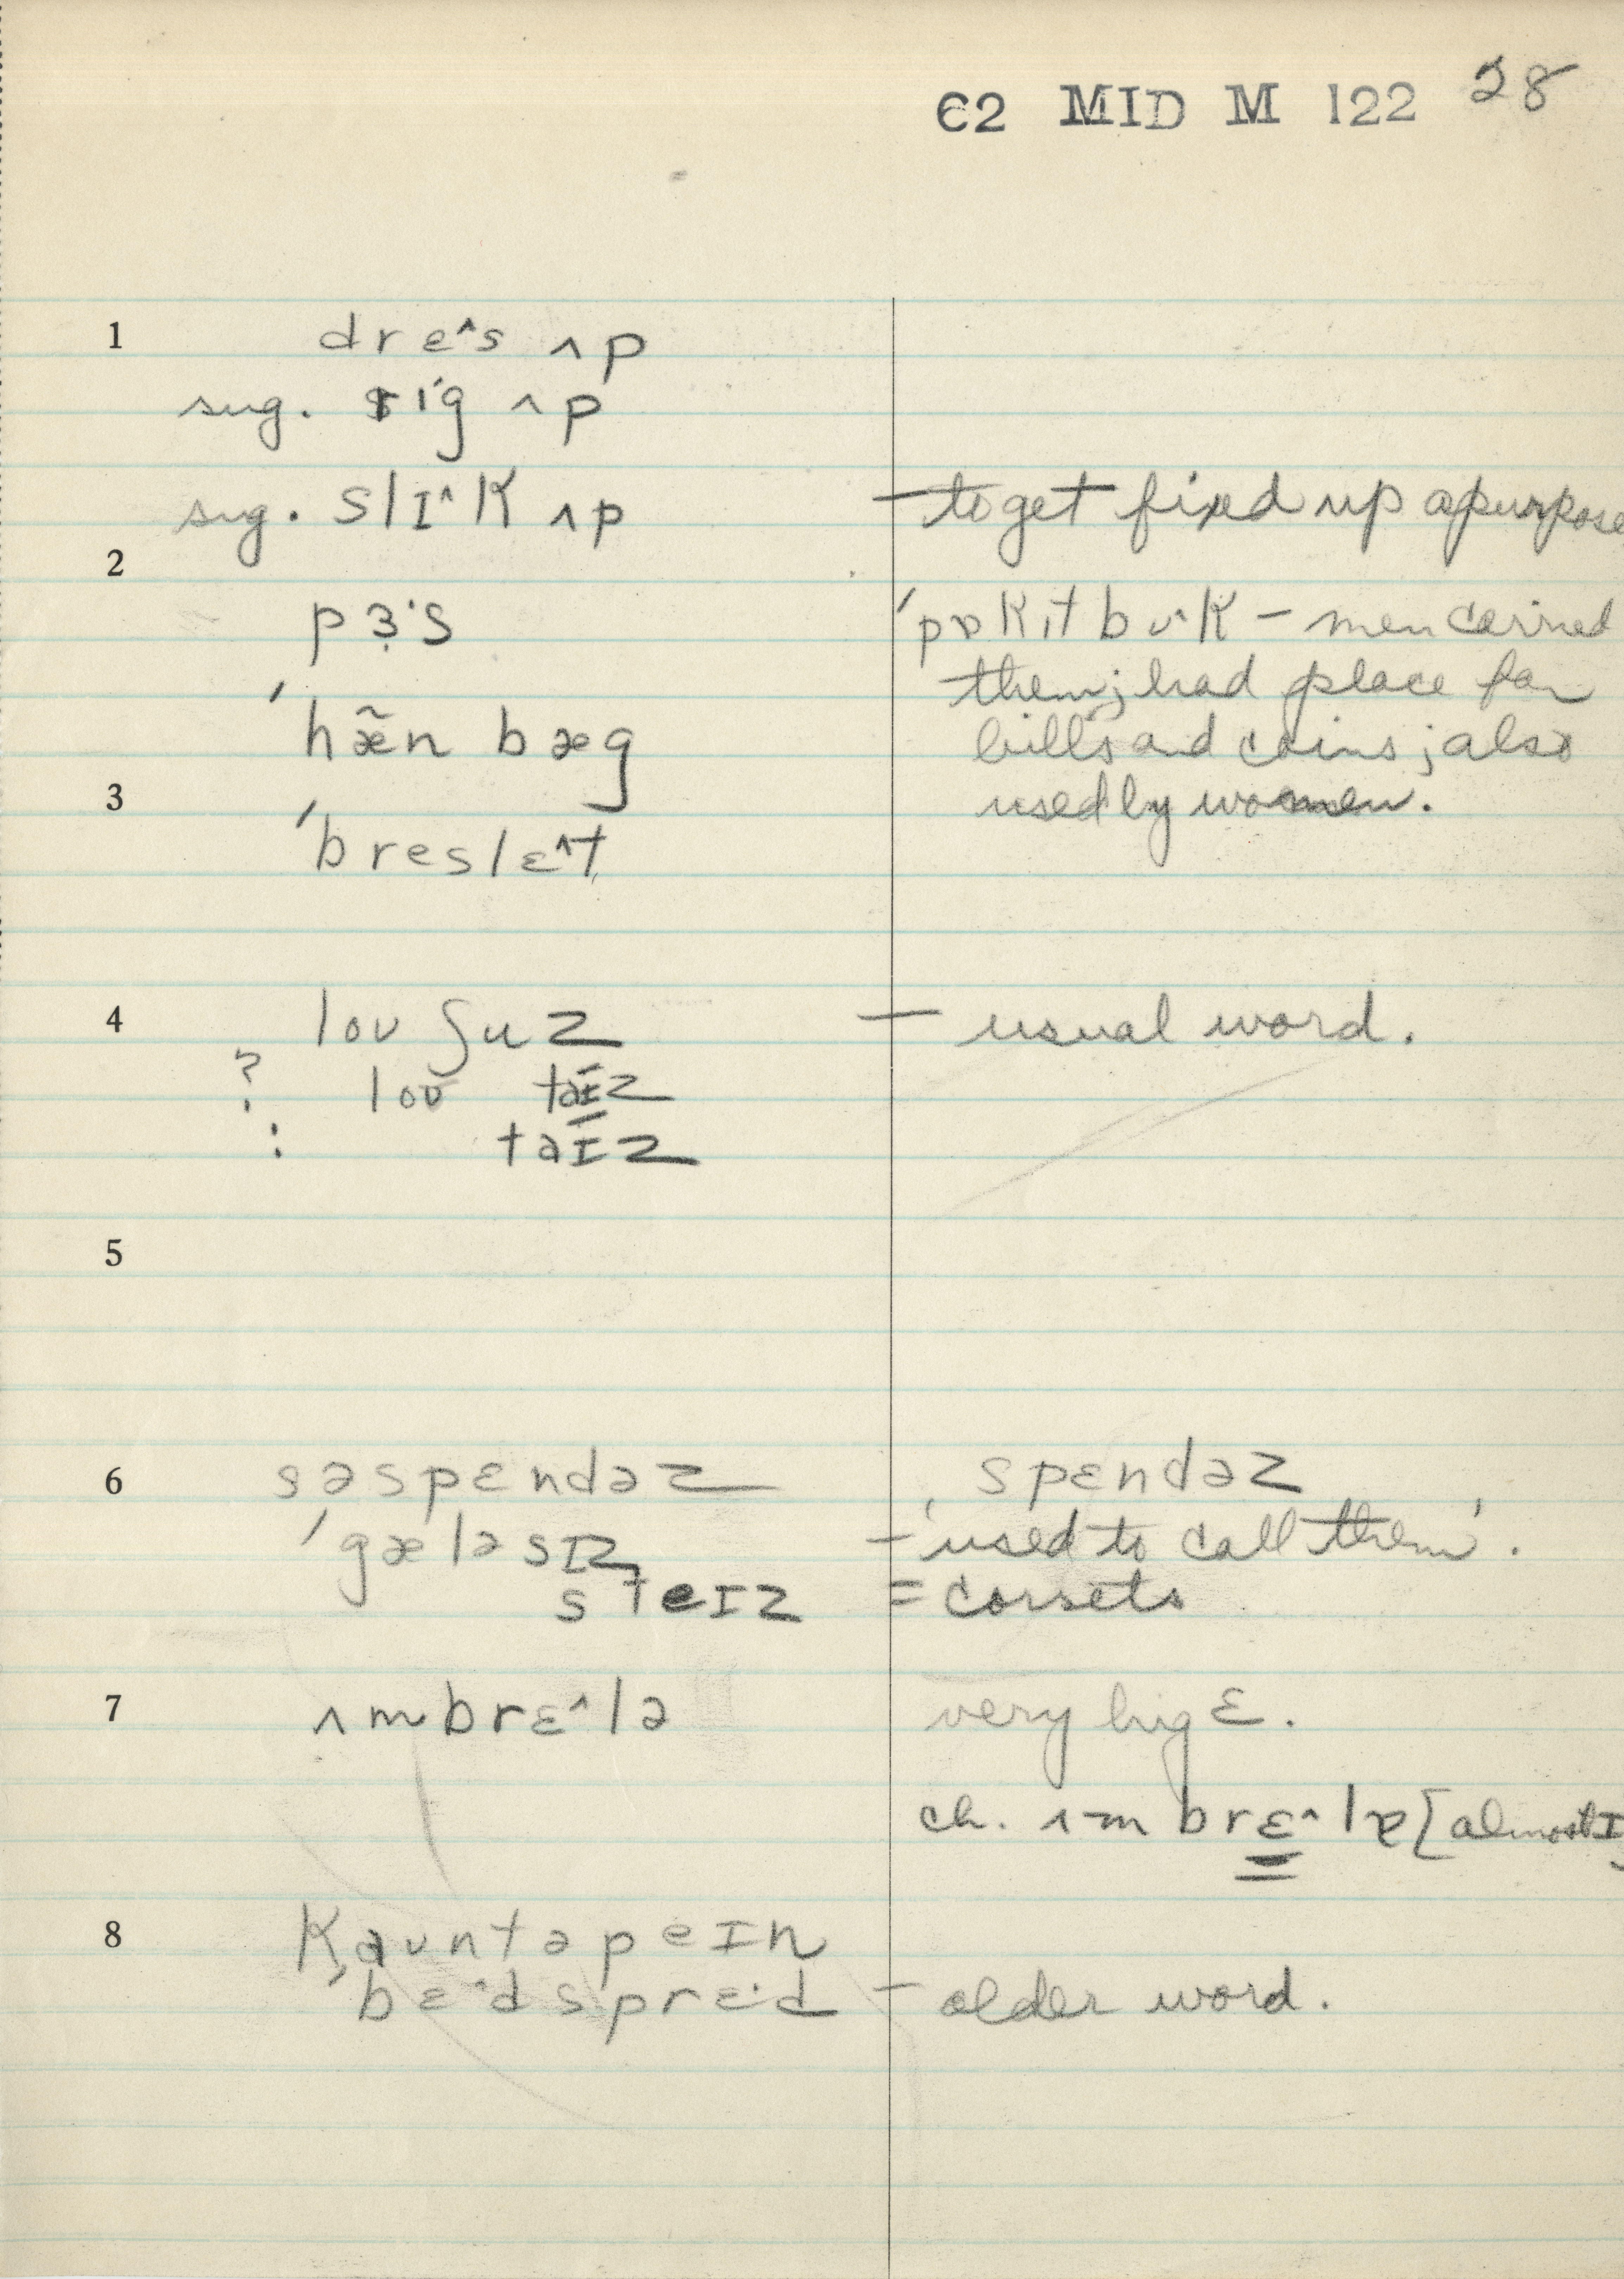 C2 MID M 122 28
1 drɛ^s ʌp
sug. rig ʌp
sug. slɪ^k ʌp – to get fixed up apurpose
2
pɜ·s ˈpɒkɪt bʊ^k – men carried
them; had place for
ˈhæ̃n bæg bills and coins; also
3 used by women.
ˈbreslɛ^t
4 loʊ ʃuz – usual word.
? loʊ taɪz
: taɪz
5
6 səspɛndəz spɛndəz
ˈgæləsɪz – 'used to call them'.
steɪz = corsets
7 ʌmbrɛ^lə very big ɛ.
ch. ʌmbrɛ^lɐ [almost ɪ]
8 kaʊntəpeɪn
ˈbɛ·dsprɛ·d – older word.